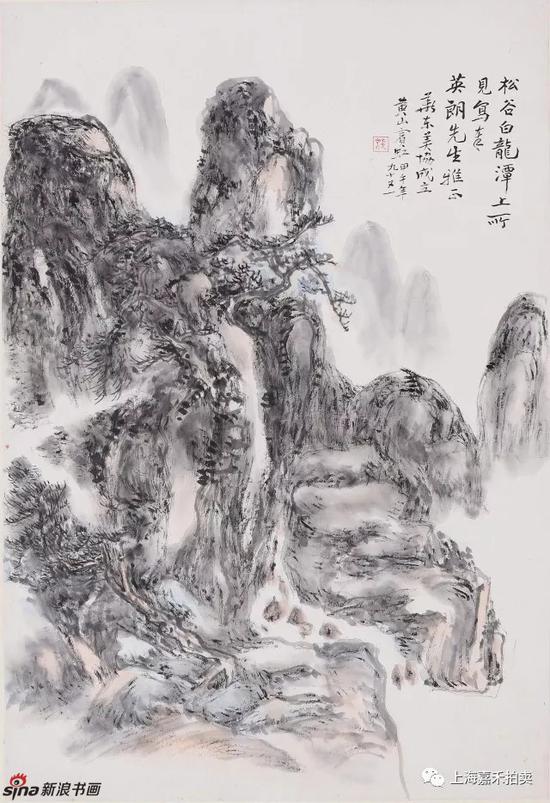 松谷白龍潭上所
見寫奉
英朗先生雅正
華东美協成立
黄山賓虹甲午年
九十又一
sina新浪书画
上海嘉禾拍卖